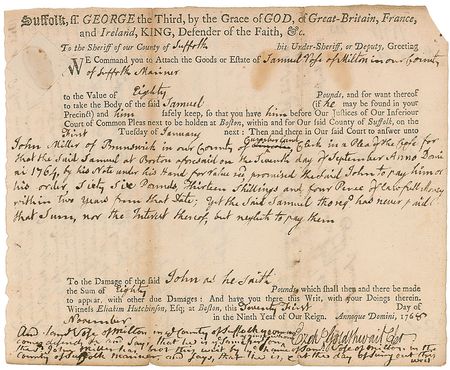 Suffolk, ss. GEORGE the Third, by the Grace of GOD, of Great-Britain, France,
and Ireland, KING, Defender of the Faith, &c.
To the Sheriff of our County of Suffolk his Under-Sheriff, or Deputy, Greeting
WE Command you to Attach the Goods or Estate of Samuel Vose of Milton in our County
of Suffolk Mariner
to the Value of Eighty Pounds, and for want thereof
to take the Body of the said Samuel (if he may be found in your
Precinct) and him safely keep, so that you have him before Our Justices of Our Inferiour
Court of Common Pleas next to be holden at Boston, within and for Our said County of Suffolk, on the
First Tuesday of January next: Then and there in Our said Court to answer unto
John Miller of Brunswick in our County of Cumberland in a Plea of the Case for
that the said Samuel at Boston aforesaid on the Day of September Anno Domini
1764, by his Note under his Hand for Value promised the said John to pay him or
his order, Sixty Six Pounds, Thirteen Shillings and four Pence Lawfull Money
within two Years from that Date; Yet the said Samuel tho req. has never paid
that Sum, nor the Interest thereof, but neglects to pay them
To the Damage of the said John as he saith
the Sum of Eighty Pounds, which shall then and there be made
to appear, with other due Damages: And have you there this Writ, with your Doings therein.
Witness Eliakim Hutchinson, Esq; at Boston, this Twenty First Day of
November in the Ninth Year of Our Reign. Annoque Domini, 176
And Vose of Milton in County of
comes defends &c and Say, that he is
the John Miller this writ by the name of Samuel Vose of Milton in the
County of Suffolk mariner and says, that he is, & at the day of suing out this